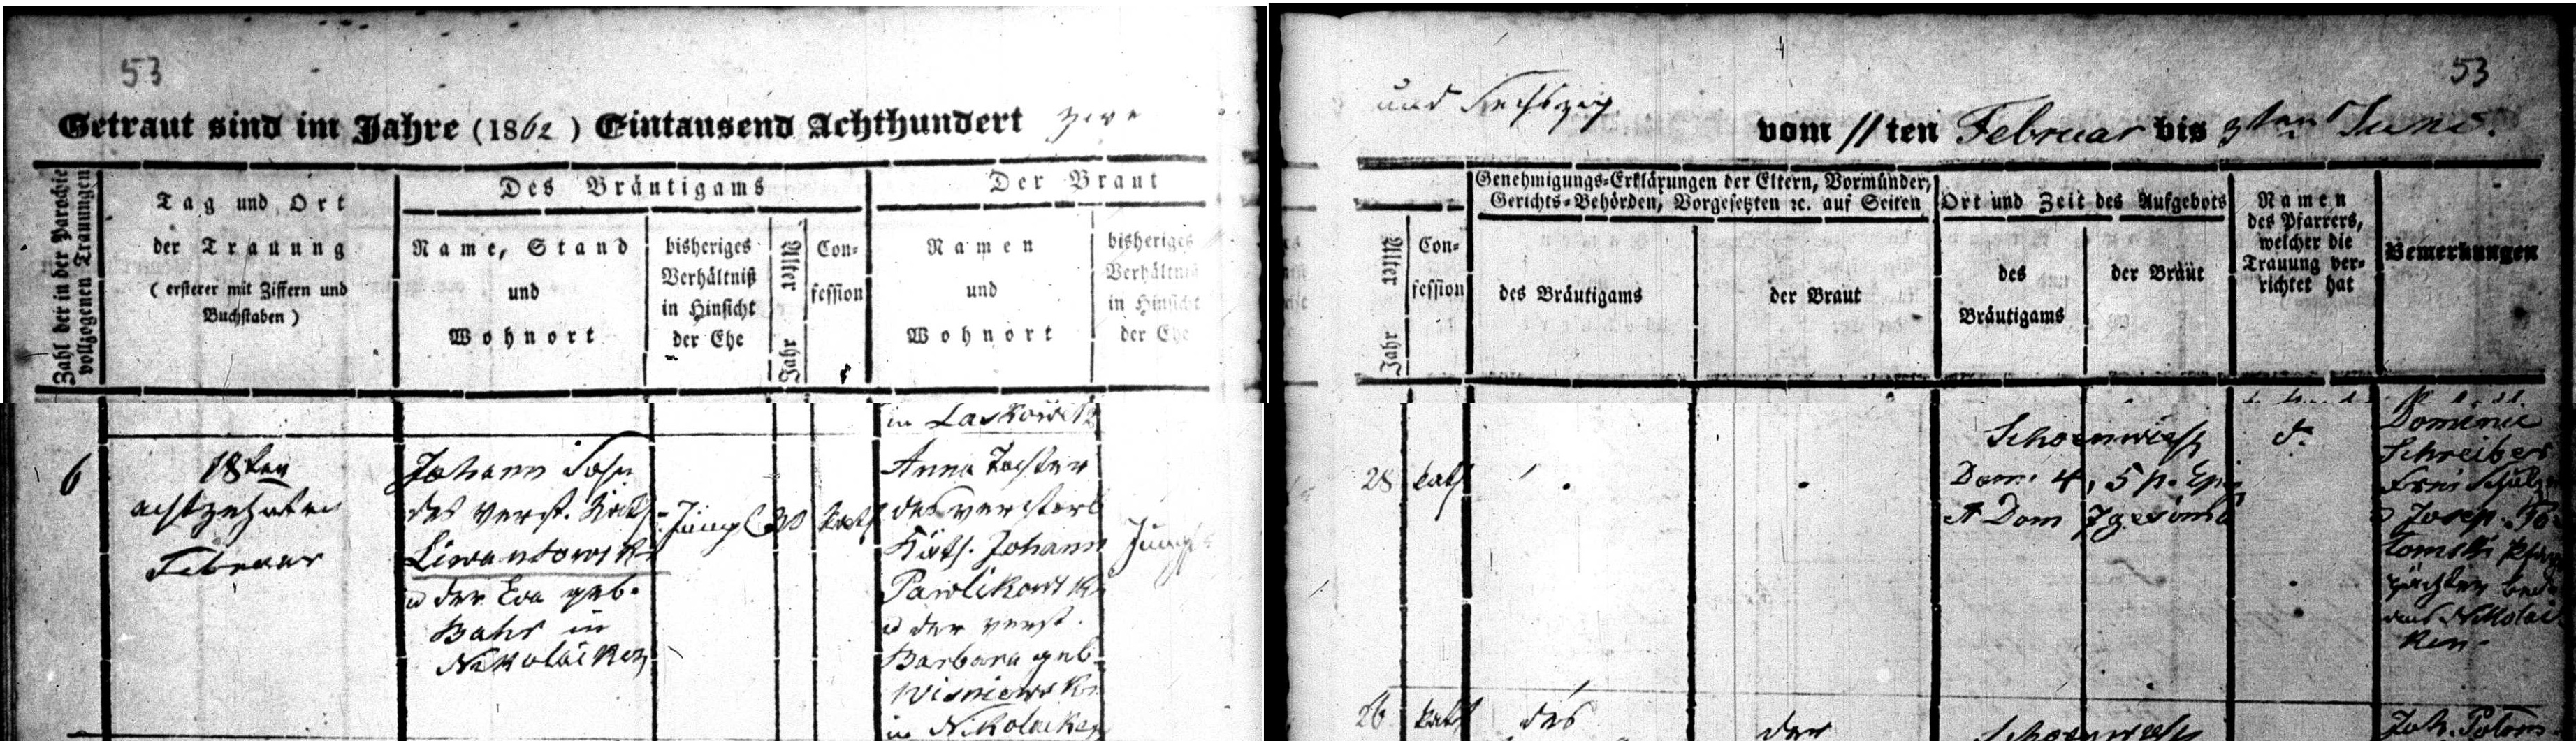 53
Getraut sind im Jahre (1862) Eintausend Achthundert zwei
Zahl der in der Parochie vollzogenen Trauungen
Tag und Ort
der Trauung
(ersterer mit Ziffern und
Buchstaben)
Des Bräutigams
Name, Stand
und
Wohnort
bisheriges
Verhältniß
in Hinsicht
der Ehe
Alter
Jahr
Con-
fession
Der Braut
Namen
und
Wohnort
bisheriges
Verhältniß
in Hinsicht
der Ehe
53
und sechszig
vom 11ten Februar bis 9ten Juni.
Alter
Jahr
Con-
fession
Genehmigungs-Erklärungen der Eltern, Vormünder,
Gerichts-Behörden, Vorgesetzten ꝛc. auf Seiten
des Bräutigams
der Braut
Ort und Zeit des Aufgebots
des
Bräutigams
der Braut
Namen
des Pfarrers,
welcher die
Trauung ver-
richtet hat
Bemerkungen
in Laskowitz
6
18ten
achtzehnten
Februar
Johann Sohn
des verst. Käth.
Liwantowski
u der Eva geb.
Bahr in
Nikolaiken
Jungg
30
kath
Anna Tochter
des verstorb
Käth. Johann
Pawlikowski
u der verst.
Barbara geb.
Wisniewski
in Nikolaiken
Jungf
28
kath
Schoenwiese
Dom. 4, 5 p. Epi
et Dom 7gesima
d.
Dominic
Schreiber
Frei Schulz
u Josep. To-
tomski Pfarr
pächter beide
aus Nikolai
ken.
26
kath
des
der
Schoenwiese
Joh.